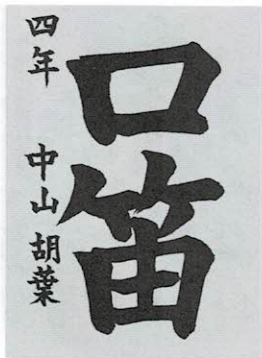 口笛
四年 中山胡葉